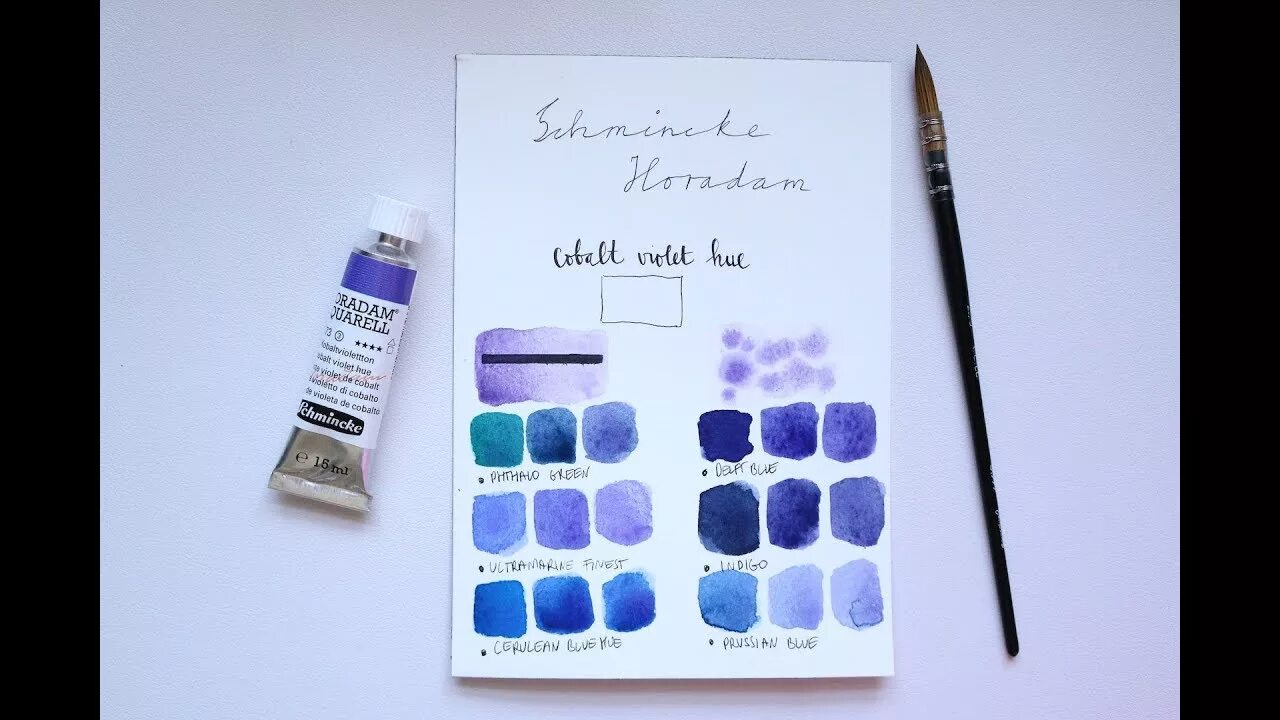 Schmincke
Horadam
cobalt violet hue
ORADAM®
QUARELL
73 3 ****
obaltviolettton
obalt violet hue
violet de cobalt
violetto di cobalto
de violeta de cobalto
Schmincke
e 15 ml
PHTHALO GREEN
DELFT BLUE
ULTRAMARINE FINEST
INDIGO
CERULEAN BLUE HUE
PRUSSIAN BLUE